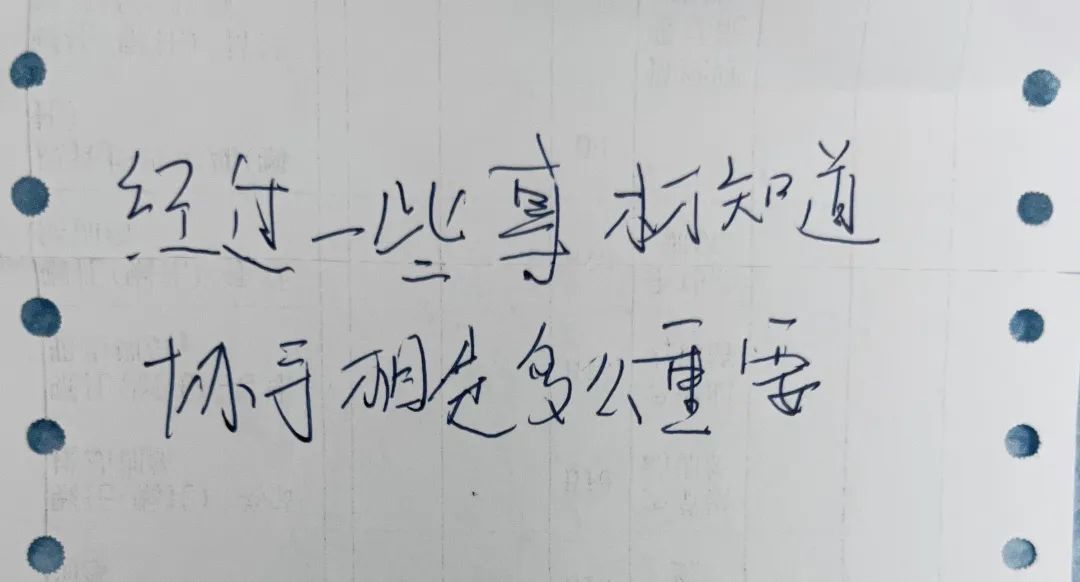 经过一些事才知道
协手相是多么重要